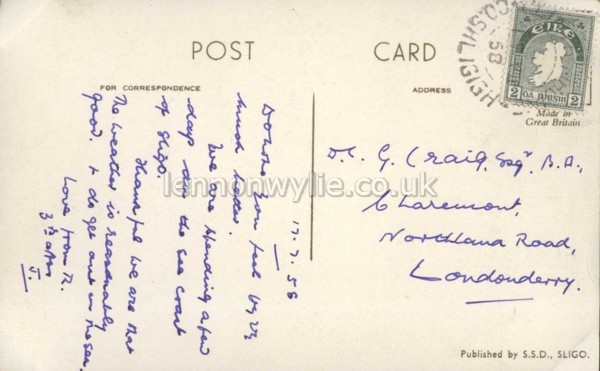 POST CARD
FOR CORRESPONDENCE
ADDRESS
EIRE
2
2
CO. SHLIGIGH
58
Made in
Great Britain
17.7.58
you feel
much better.
We are spending a few
days on the sea coast
of Sligo.
Thankful we are that
the weather is reasonably
good. to get out in the sea.
Love from
D. G. Craig, Esqr. B.A.,
Claremont,
Northland Road,
Londonderry.
lennonwylie.co.uk
Published by S.S.D., SLIGO.